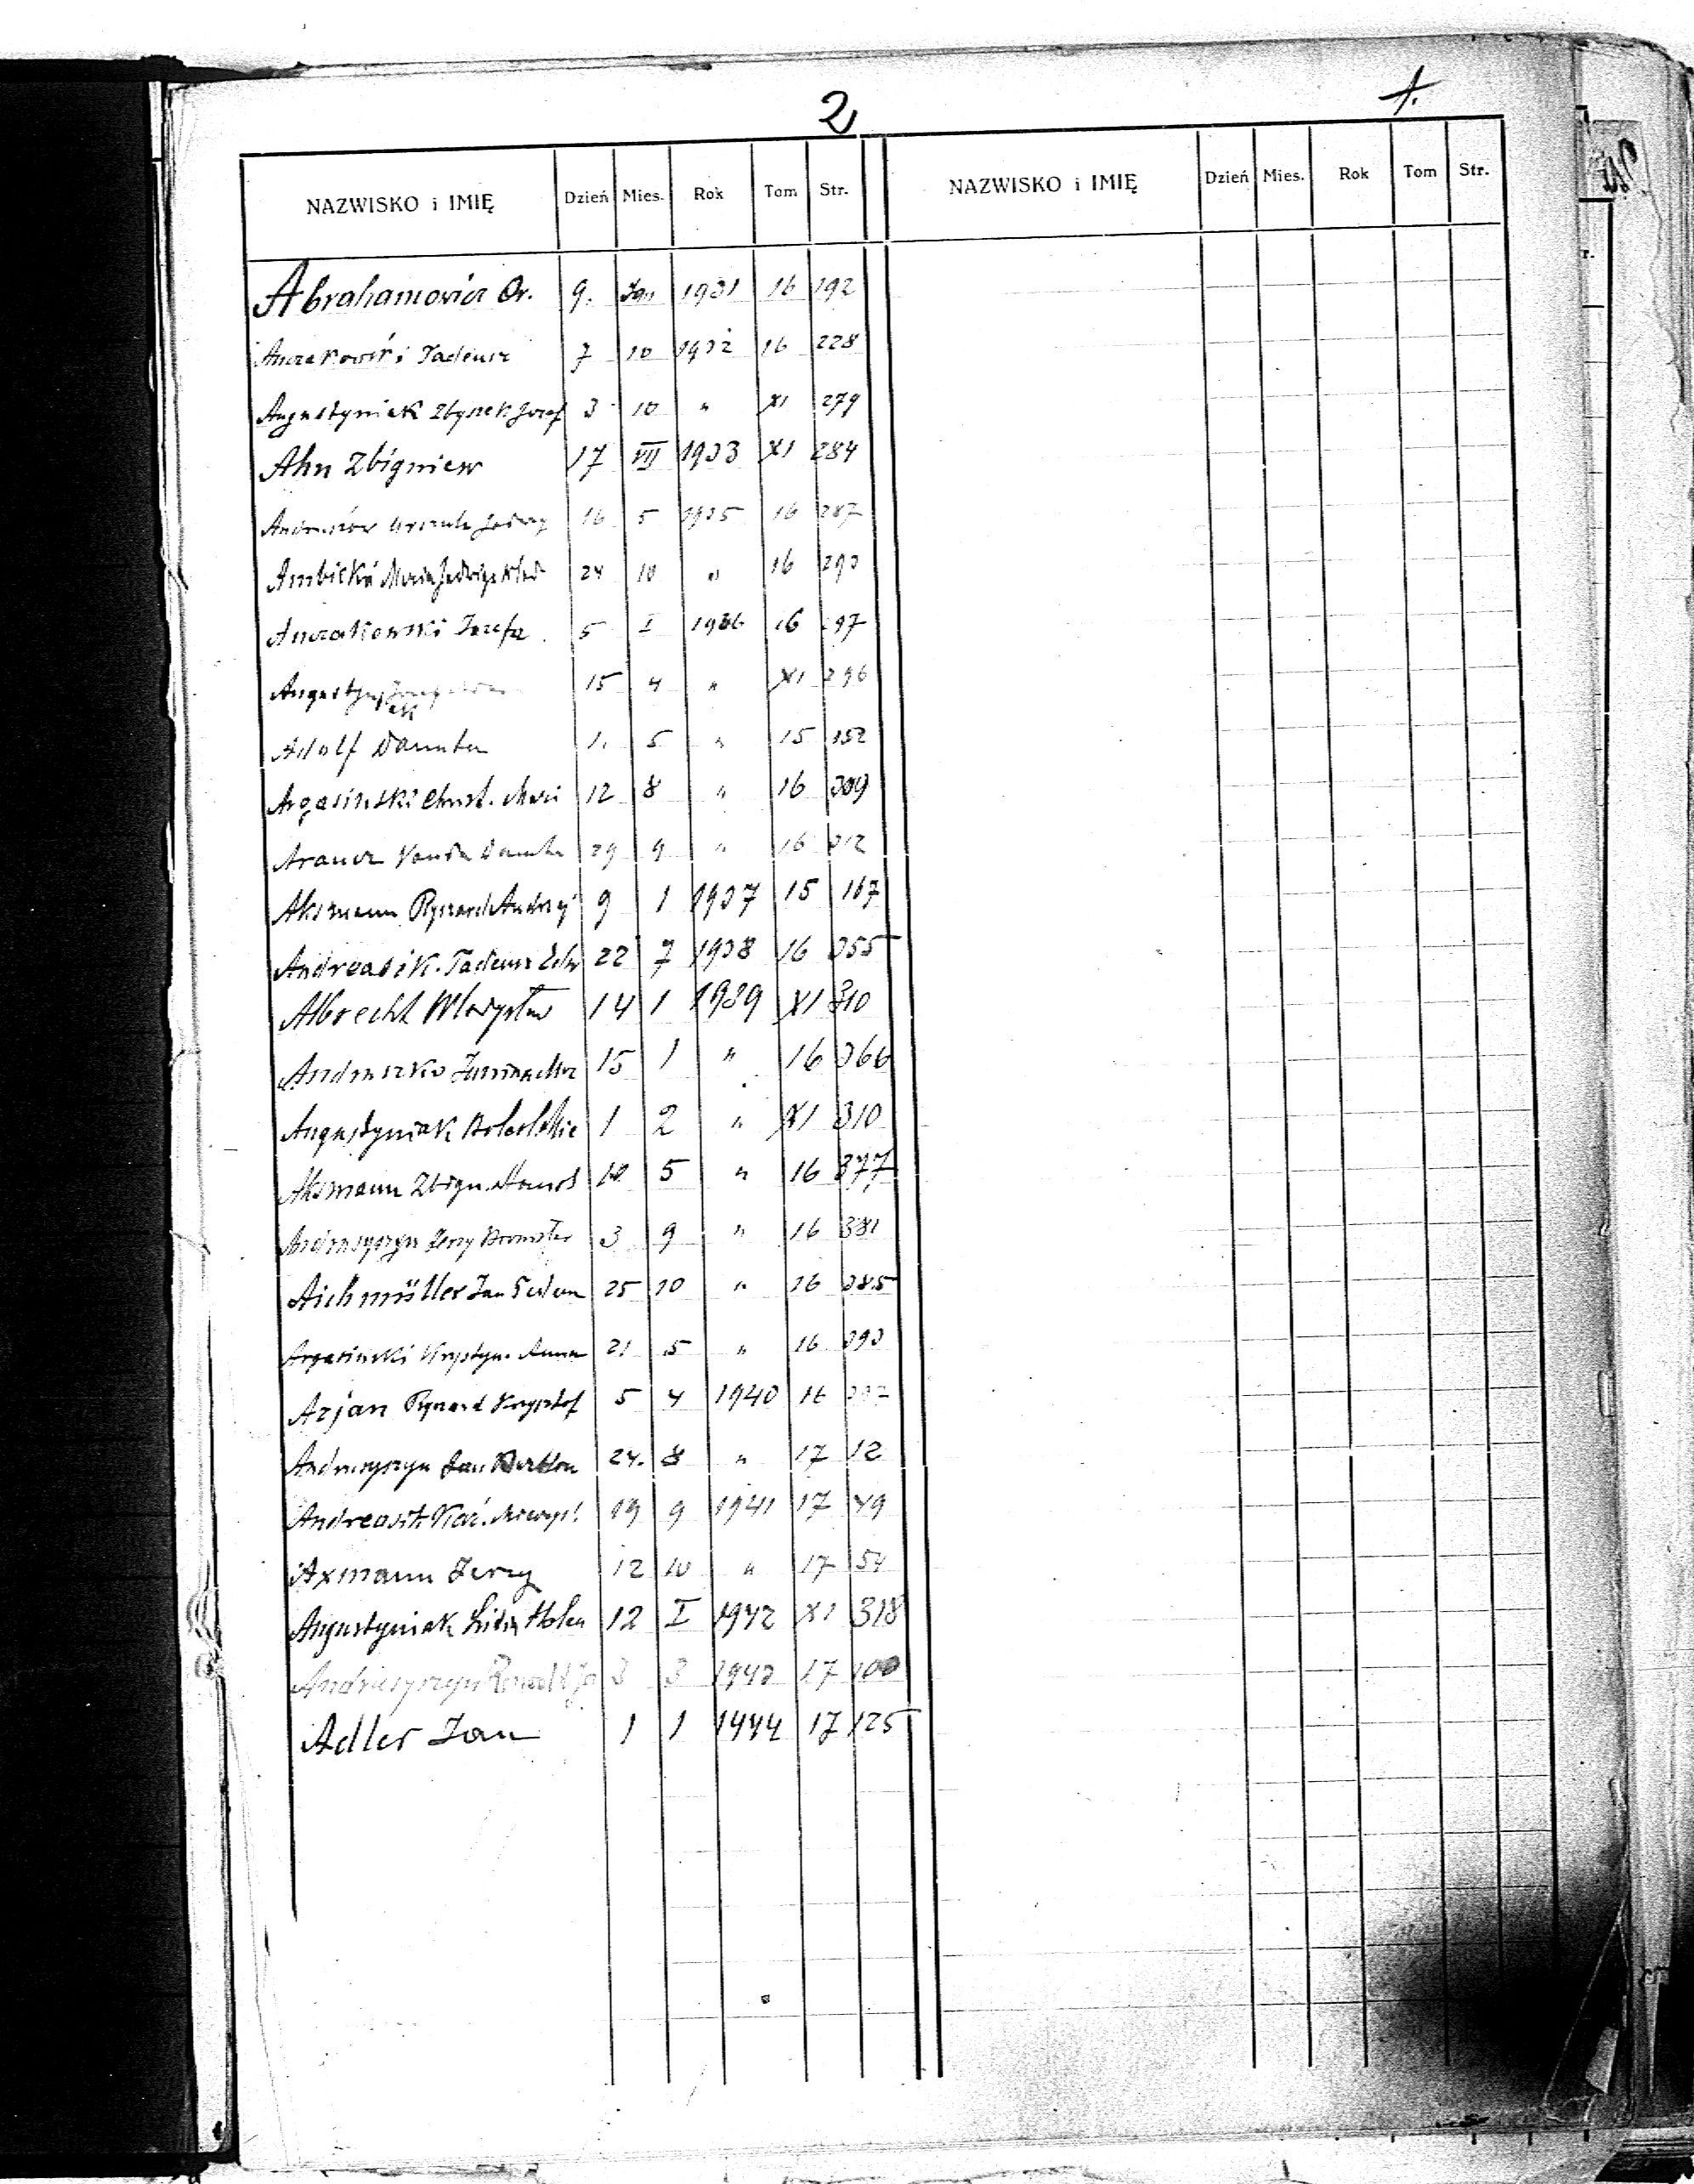 2
1.
NAZWISKO i IMIĘ Dzień Mies. Rok Tom Str. NAZWISKO i IMIĘ Dzień Mies. Rok Tom Str.
Abrahamowicz Or. 9. Jan 1931 16 192
Anczakowski Tadeusz 7 10 1932 16 228
Augustyniak Zbyszek Józef 3 10 " XI 279
Ahn Zbigniew 17 VII 1933 XI 284
Andruszów Urszula Jadwig 16 5 1935 16 287
Ambicka Maria Jadwiga Wład 24 10 " 16 293
Anczakowski Józefa 5 I 1936 16 297
Augustyn 15 4 " XI 296
Adolf Danuta 1. 5 " 15 152
Argasiński Chryst. Mari 12 8 " 16 309
Wanda Danuta 29 9 " 16 312
Aksmann Ryszard Andrzej 9 1 1937 15 167
Andreasik Tadeusz Edw 22 7 1938 16 355
Albrecht Władysław 14 1 1939 XI 310
Andruszko Janina 15 1 " 16 366
Augustyniak 1 2 " XI 310
Aksmann Zbign. 18 5 " 16 377
Andruszyszyn Jerzy Bronisław 3 9 " 16 381
Aichmüller Jan Tadeu 25 10 " 16 385
Argasiński Krystyn. Anna 21 5 " 16 393
Arjan Ryszard Krzysztof 5 4 1940 16
Andruszyszyn Jan 24. 8 " 17 12
Andreasik Kaź. Mieczysł. 19 9 1941 17 49
Axmann Jerzy 12 10 " 17 54
Augustyniak Lidia Helen 12 I 1942 XI 318
Andruszyszyn 3 3 1943 17 100
Adler Jan 1 1 1944 17 125